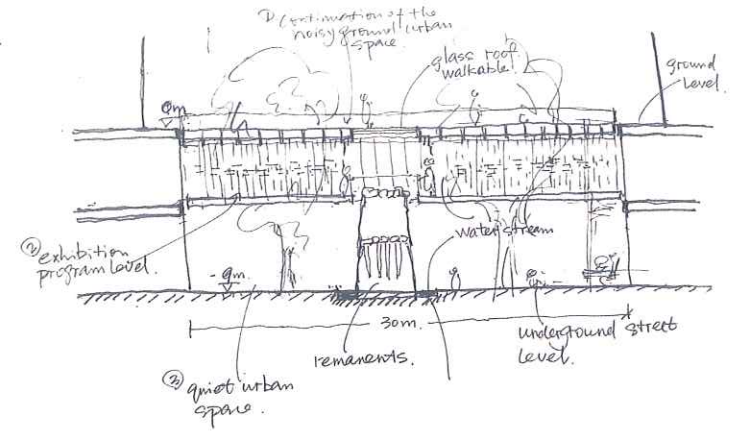 ① Continuation of the
noisy ground urban
space.
glass roof
walkable!
ground
level.
0m.
② exhibition
program level.
water stream
-9m.
30m.
underground street
level.
remanents.
③ quiet urban
space.